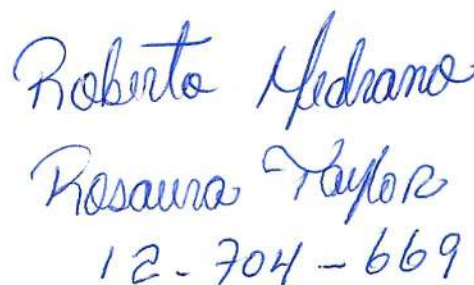 Roberto Medrano
Rosaura Taylor
12-704-669